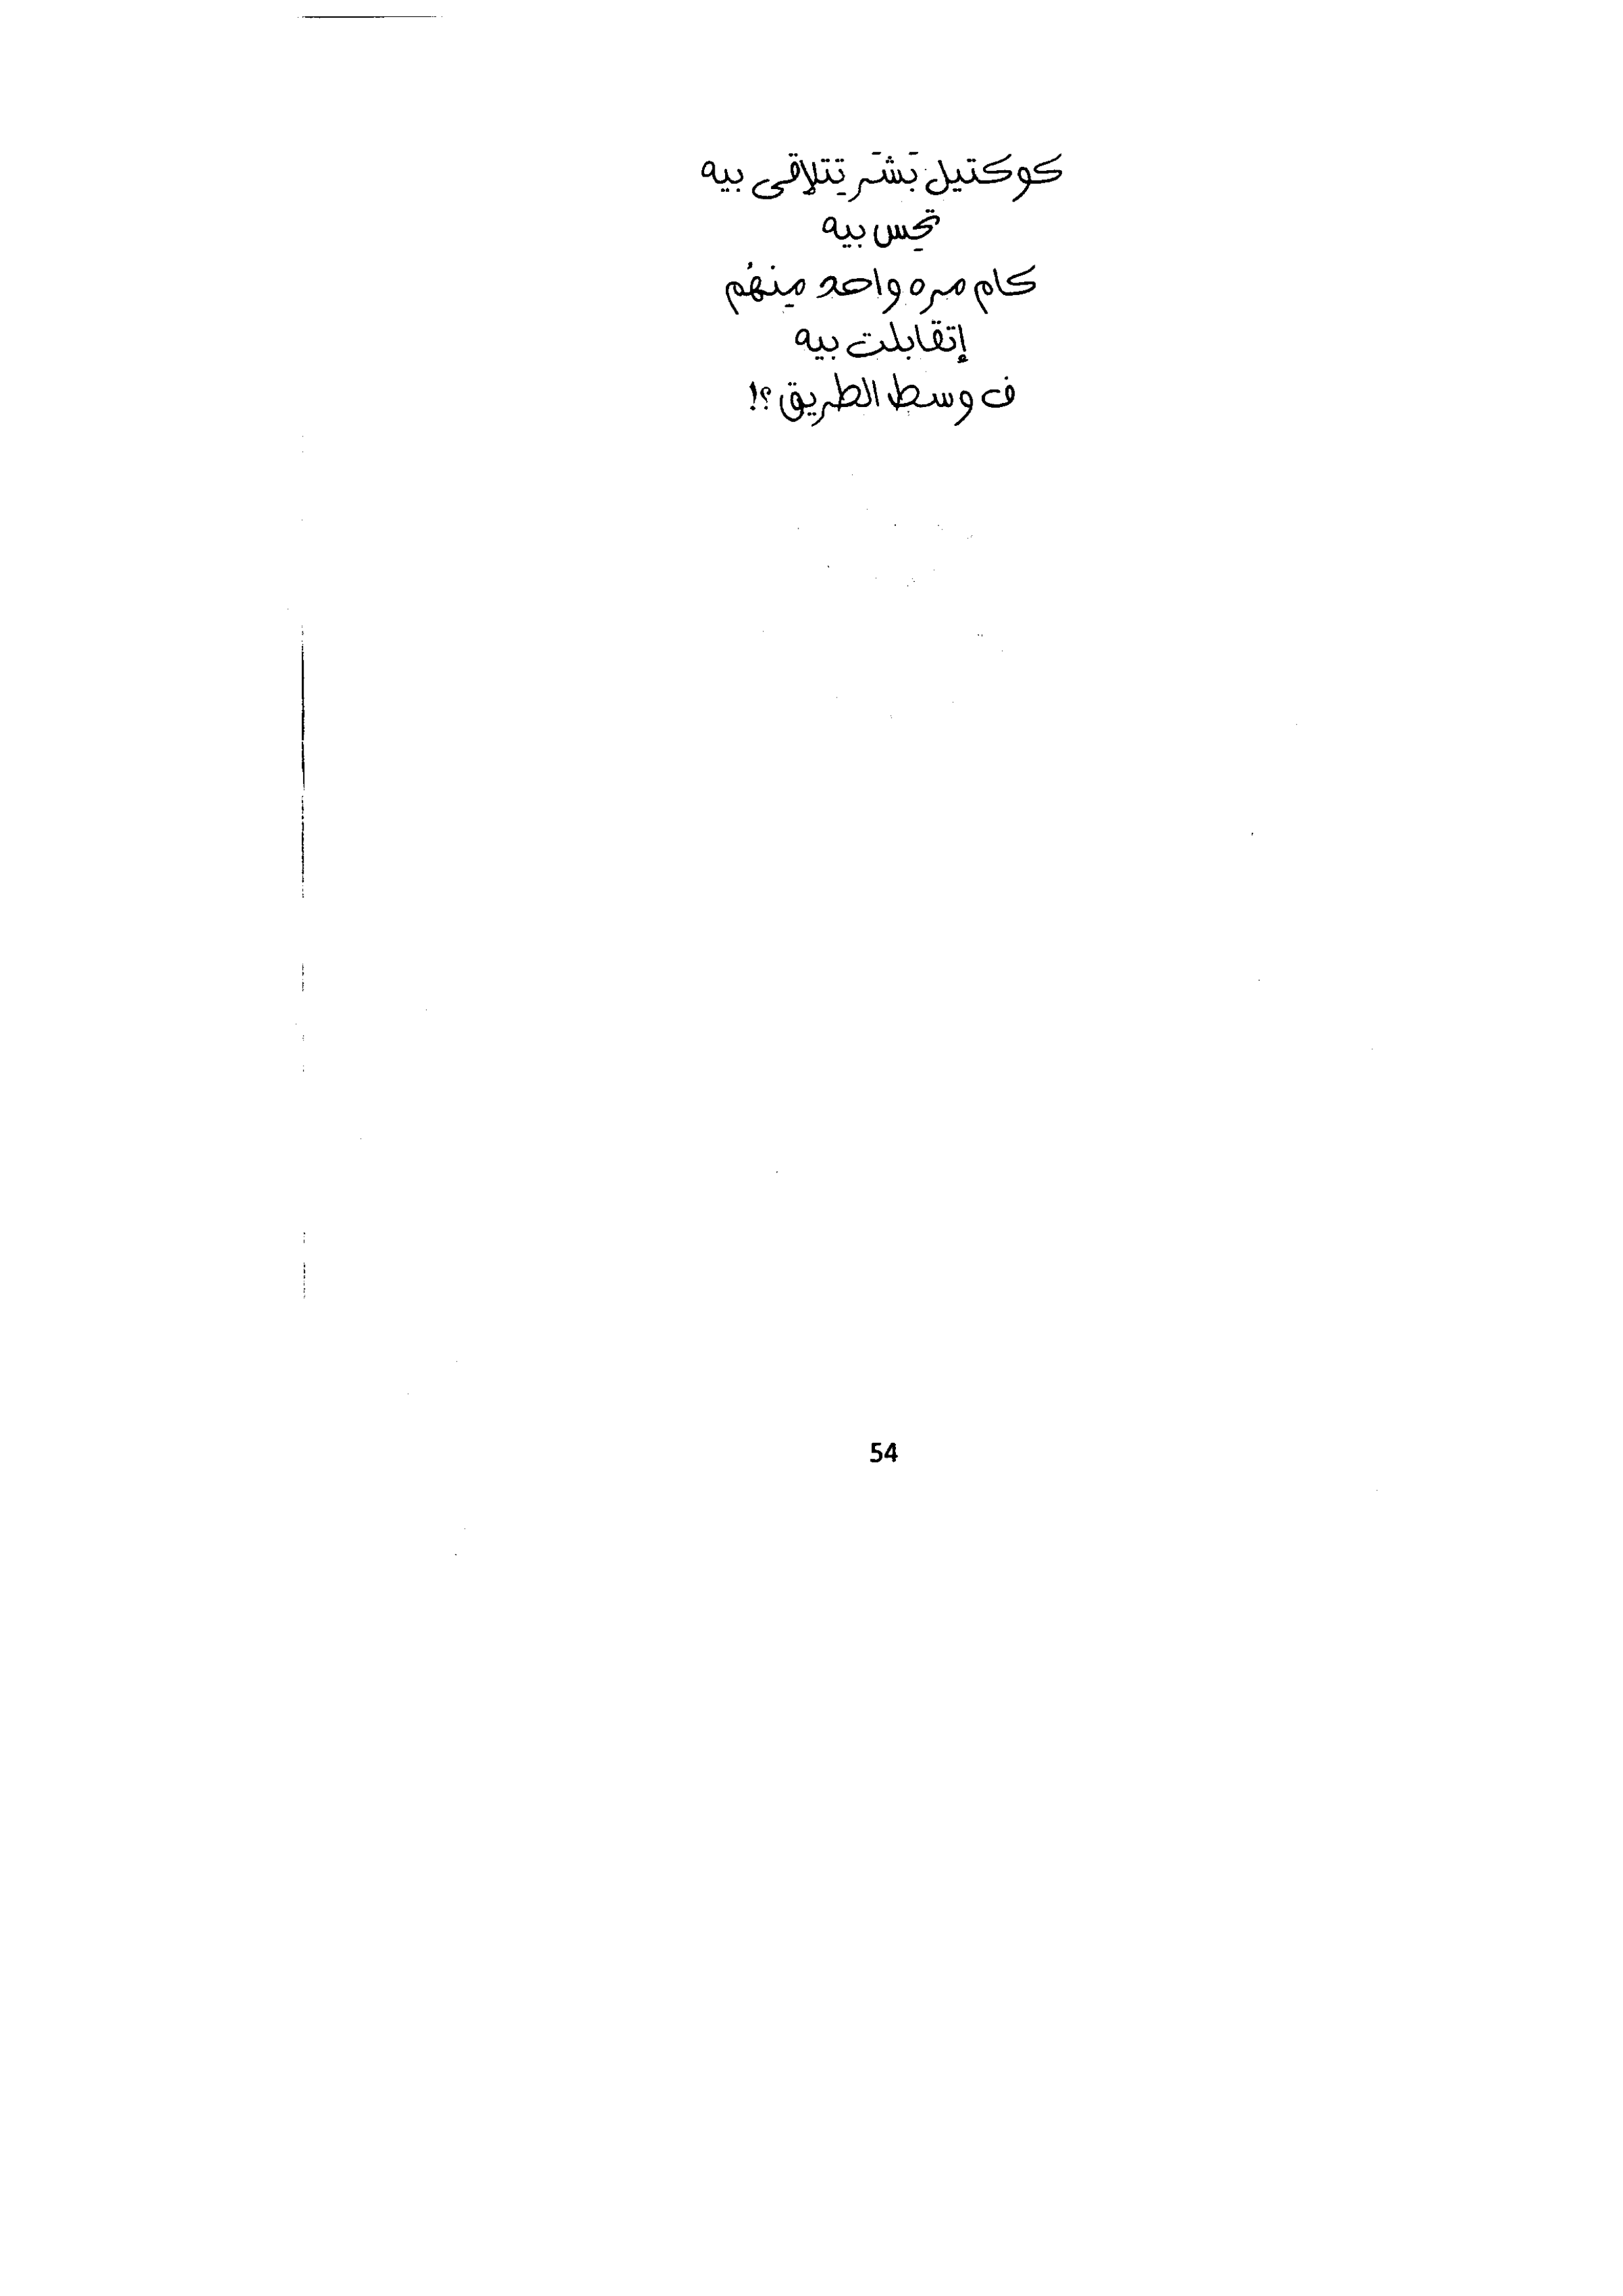 كوكتيل بَشَر تِتلاقى بيه
تحِس بيه
كام مره واحد مِنهُم
إتقابلت بيه
ف وسط الطريق؟!
54